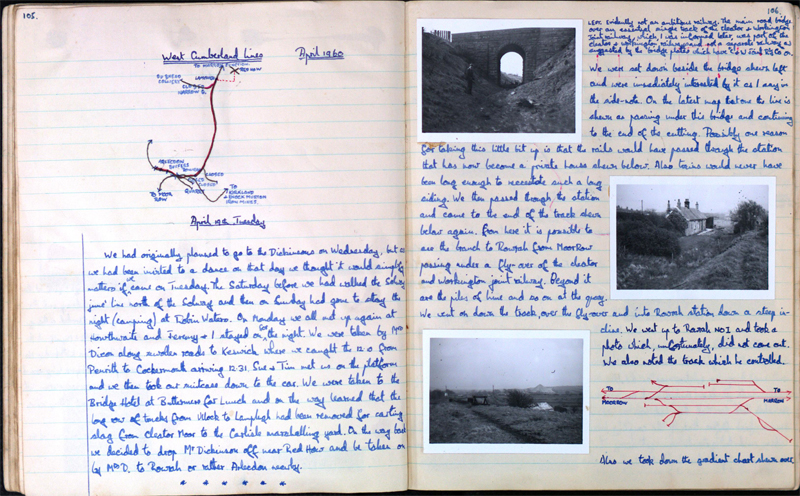 105.
West Cumberland Lines
April 1960
TO MARRON JUNCTION
RED HOW
LAMPLUGH
TO MOOR ROW
April 19th Tuesday
We had originally planned to go to the Dickinsons on Wednesday, but as
we had been invited to a dance on that day we thought it would simplify
matters if we came on Tuesday. The Saturday before we had walked the Solway
junc' line north of the Solway and then on Sunday had gone to stay the
night (camping) at Robin Waters. On Monday we all met up again at
Howthwaite and Jeremy & I stayed on for the night. We were taken by Mrs
Dixon along swollen roads to Keswick where we caught the 12.0 from
Penrith to Cockermouth arriving 12.31. Sue & Tim met us on the platform
and we then took our suitcase down to the car. We were taken to the
Bridge Hotel at Buttermere for lunch and on the way learned that the
long row of trucks from Ullock to Lamplugh had been removed for carting
slag from Cleator Moor to the Carlisle marshalling yard. On the way back
we decided to drop Mr Dickinson off near Red How and be taken on
by Mrs D. to Rowrah or rather Arlecdon nearby.
* * * * * *
106.
LEFT: Evidently not an ambitious railway. The main road bridge
over an essential single track of the Cleator & Workington
Joint railway, which, I was informed later, was part of the
Cleator & Workington railway and not a separate railway as
suggested by the bridge plates which have
We were set down beside the bridge shewn left
and were immediately interested by it as I say in
the side-note. On the latest map that one the line is
shewn as passing under this bridge and continuing
to the end of the cutting. Possibly one reason
for taking this little bit up is that the rails would have passed through the station
that has now become a private house shewn below. Also trains would never have
been long enough to necessitate such a long
siding. We then passed through the station
and came to the end of the track shewn
below again. From here it is possible to
see the branch to Rowrah from Moor Row
passing under a fly-over of the Cleator
and Workington joint railway. Beyond it
are the piles of lime and so on at the quarry.
We went on down the track, over the fly-over and into Rowrah station down a steep in-
cline. We went up to Rowrah No 1 and took a
photo which, unfortunately, did not come out.
We also noted the track which he controlled.
TO MOORROW
TO MARRON
Also we took down the gradient chart shewn over